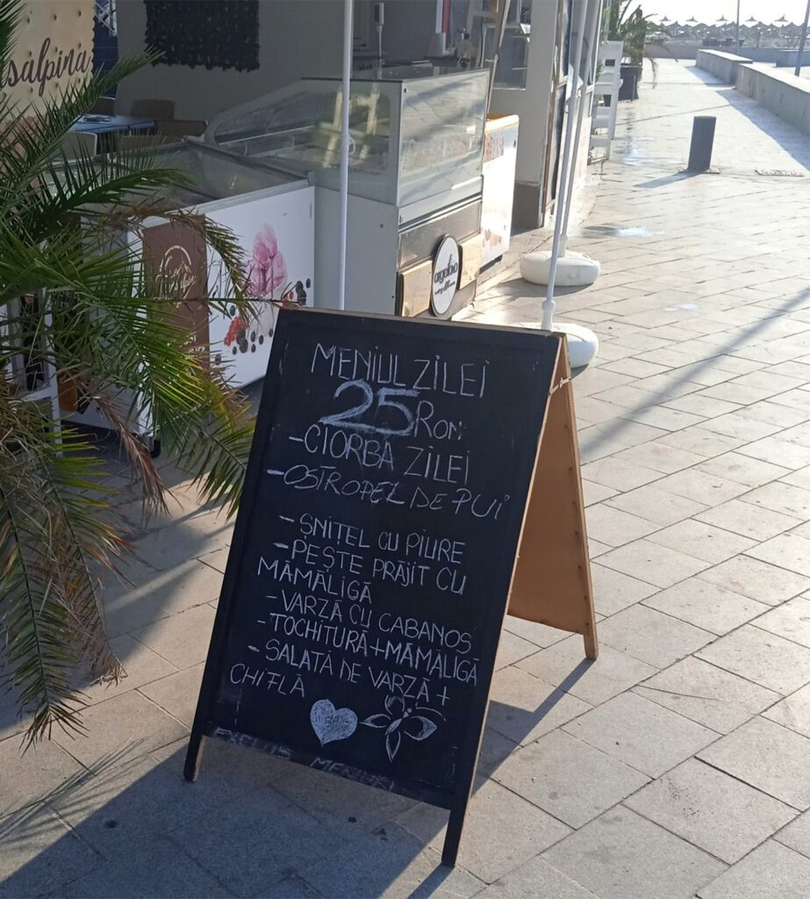 salpina
MENIUL ZILEI
25 RON
-CIORBA ZILEI
-OSTROPEL DE PUI
-ȘNITEL CU PIURE
-PEȘTE PRĂJIT CU
MĂMĂLIGĂ
-VARZĂ CU CABANOS
-TOCHITURĂ+MĂMĂLIGĂ
-SALATĂ DE VARZĂ +
CHIFLĂ
MENIURI